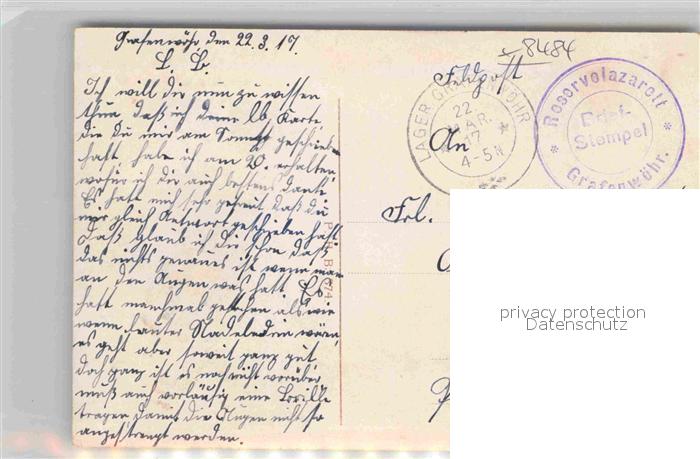 Grafenwöhr den 22.3.17.
L. B.
Ich will dir nun zu wissen
thun daß ich deine lb. Karte
die du mir am Sonntag geschrieben
hast, habe ich am 20. erhalten,
wofür ich dir auch bestens danke.
Es hatt mich sehr gefreut daß du
mir gleich Antwort geschrieben hast
Daß glaub ich dir schon daß
das nichts genaues ist wenn man
an den Augen was hatt. Es
hatt manchmal gestochen als wie
wenn lauter Nadeln drin wären,
es geht aber soweit ganz gut
doch ganz ist es noch nicht vorüber
muß auch vorläufig eine Brille
tragen damit die Augen nicht so
angestrengt werden.
8484
Feldpost
An
Frl.
LAGER GRAFENWÖHR
22
MAR.
17
4-5N
Reservelazarett
Brief-
Stempel
Grafenwöhr.
privacy protection
Datenschutz